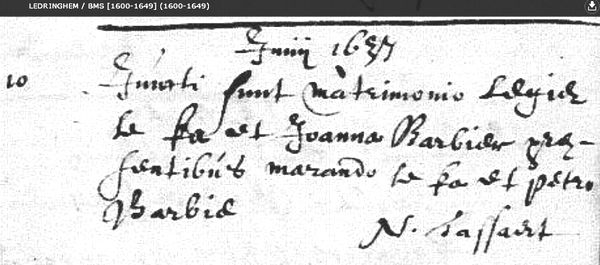 LEDRINGHEM / BMS [1600-1649] (1600-1649)
Junij 1637
10 Juncti sunt màtrimonio Legier
le fa et Joanna Barbier præ-
sentibús marando le fa et petro
Barbie
N. Tassaert